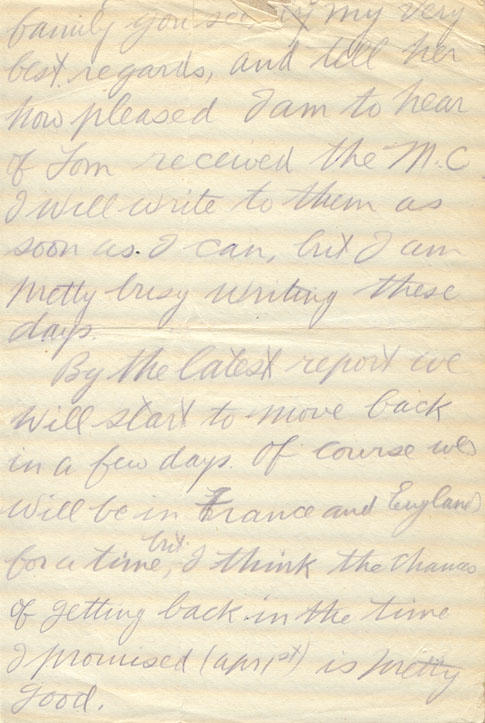 family you see, my very
best regards, and tell her
how pleased I am to hear
of Tom received the M.C
I will write to them as
soon as I can, but I am
pretty busy writing these
days.
By the latest report we
will start to move back
in a few days. Of course we
will be in France and England
for a time, but I think the chances
of getting back in the time
I promised (apr 1st) is pretty
good.